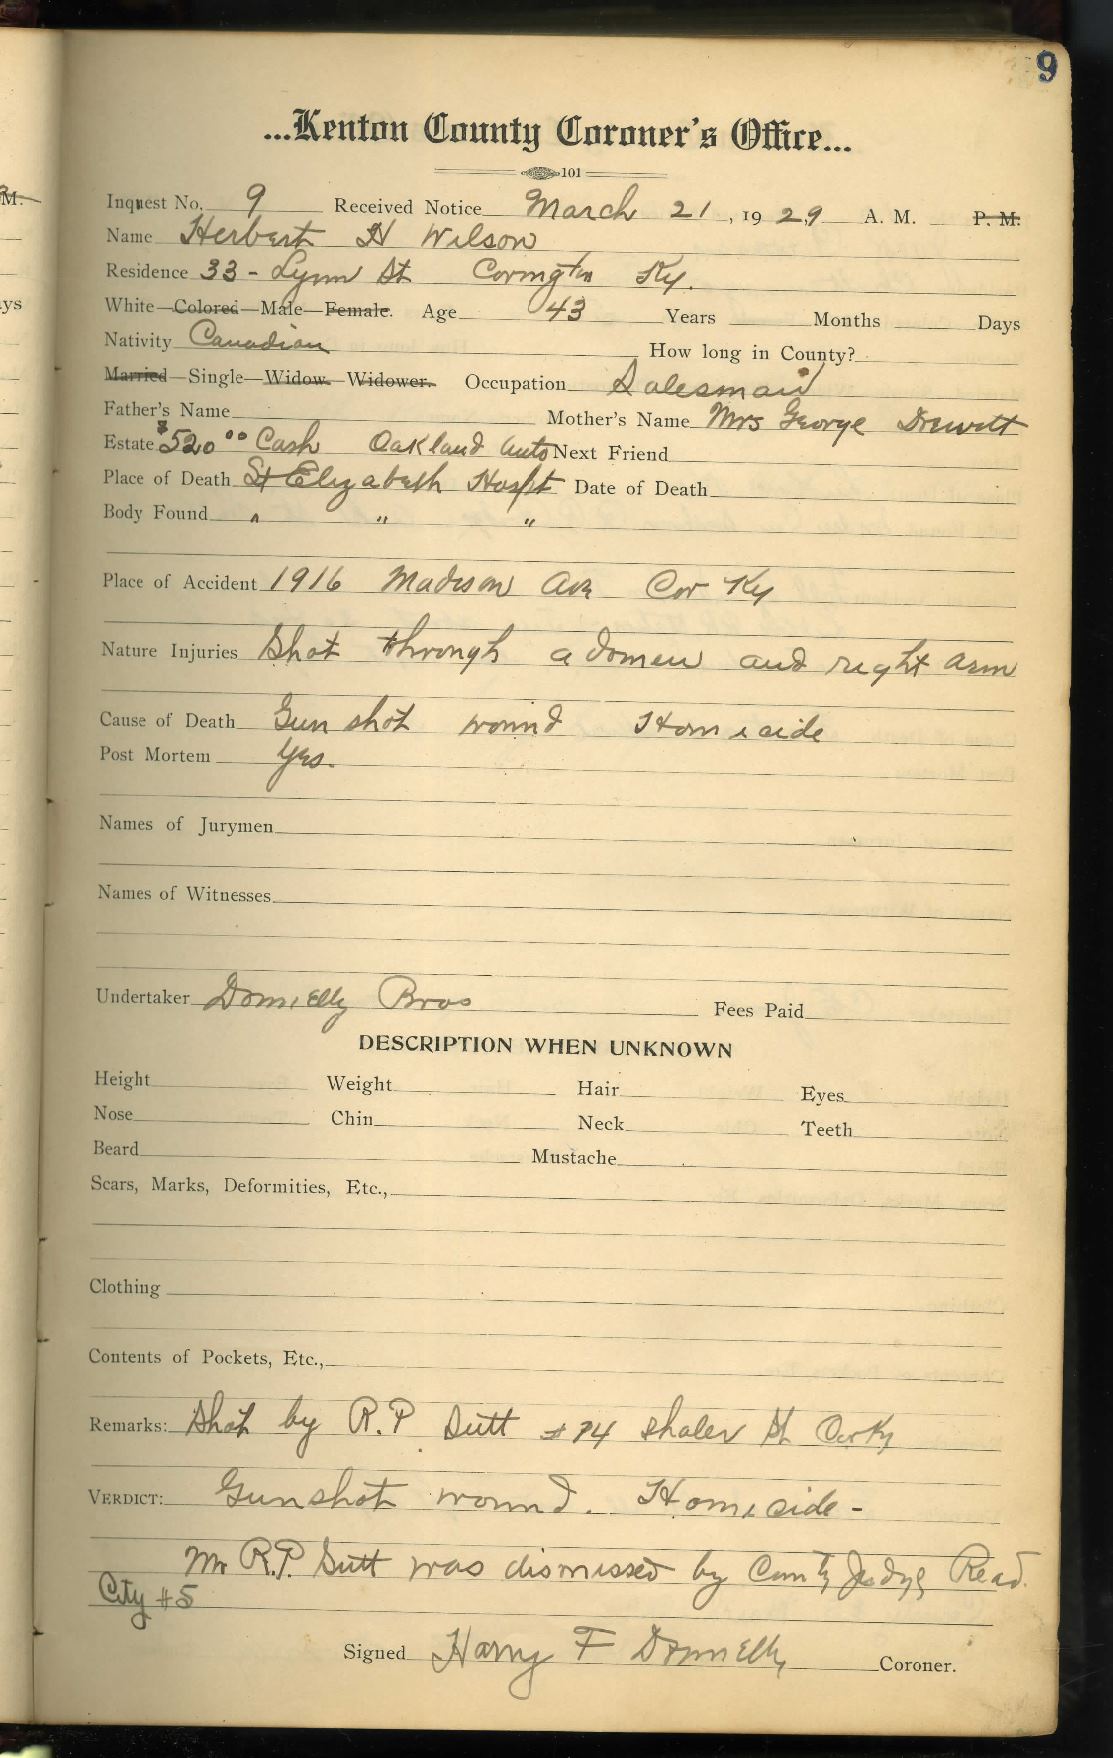 9
...Kenton County Coroner's Office...
101
M.
Inquest No. 9 Received Notice March 21, 1929 A. M. P. M.
Name Herbert H Wilson
Residence 33 - Lynn St Covington Ky.
ys
White—Colored—Male—Female. Age 43 Years Months Days
Nativity Canadian How long in County?
Married—Single—Widow—Widower. Occupation Salesman
Father's Name Mother's Name Mrs George Drewitt
Estate $520.00 Cash Oakland Auto Next Friend
Place of Death St Elizabeth Hospt Date of Death
Body Found " " "
Place of Accident 1916 Madison Ave Cov Ky
Nature Injuries Shot through adomen and right arm
Cause of Death Gun shot wound Homicide
Post Mortem Yes.
Names of Jurymen
Names of Witnesses
Undertaker Donnelly Bros Fees Paid
DESCRIPTION WHEN UNKNOWN
Height Weight Hair Eyes
Nose Chin Neck Teeth
Beard Mustache
Scars, Marks, Deformities, Etc.,
Clothing
Contents of Pockets, Etc.,
Remarks: Shot by R.P. Sutt #74 Shaler St Cov Ky
VERDICT: Gunshot wound. Homicide -
Mr R.P. Sutt was dismissed by County Judge Read.
City #5
Signed Harry F Donnelly Coroner.